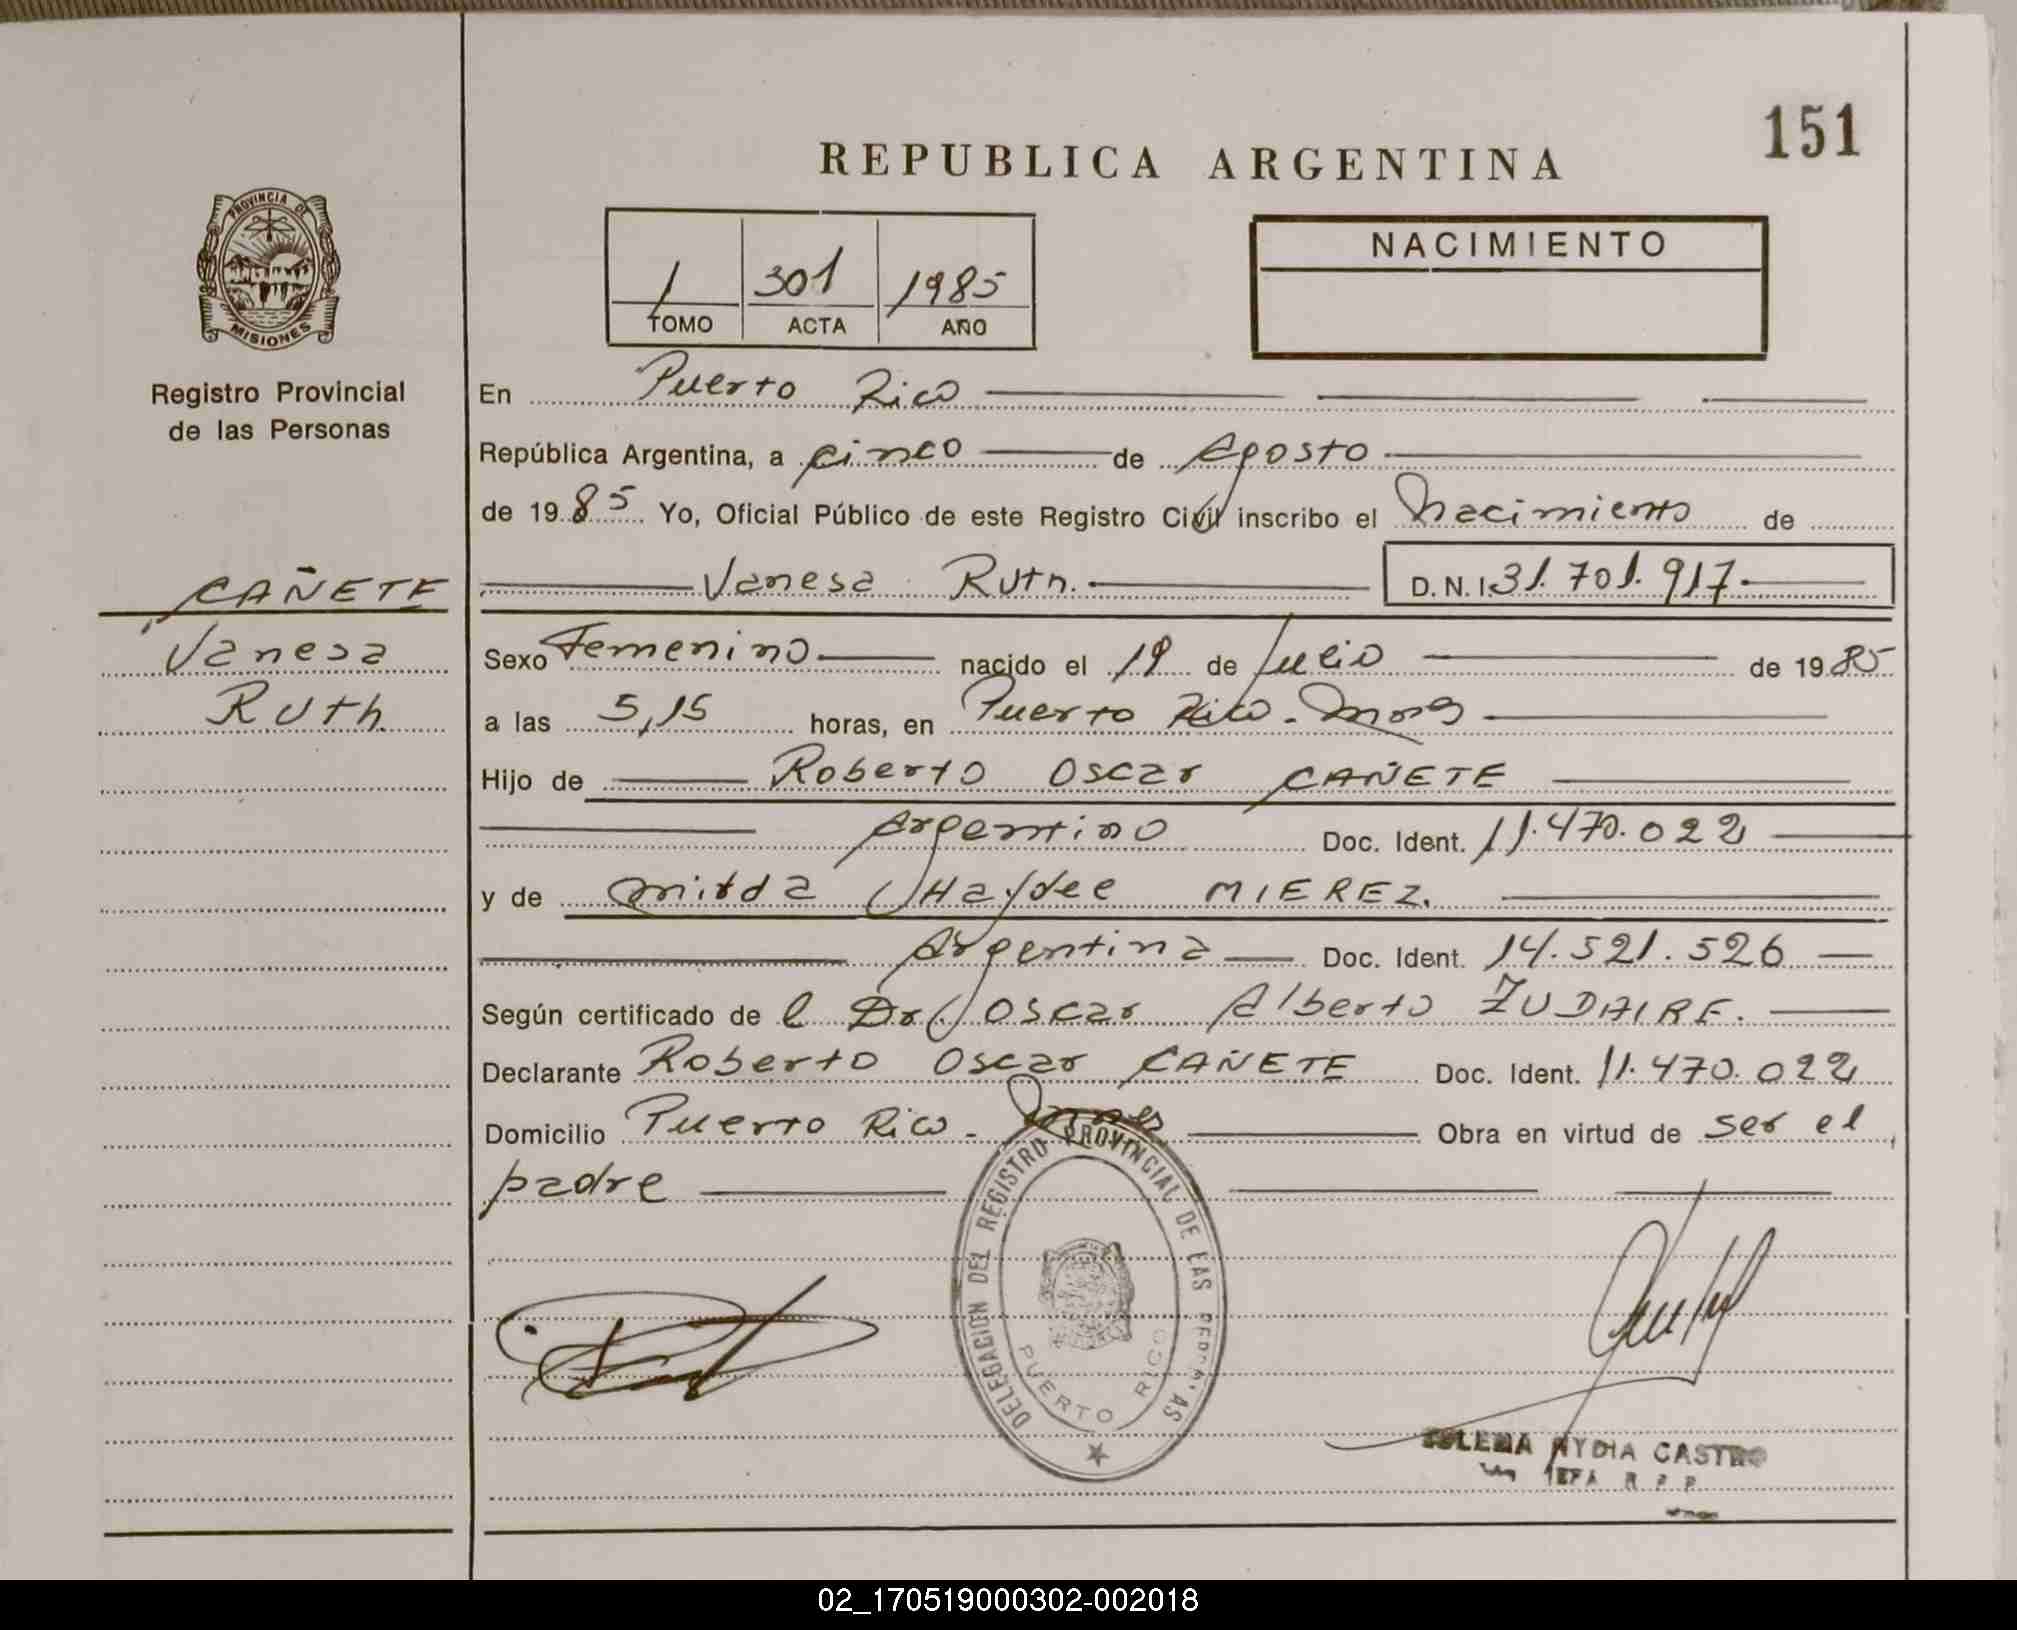 151
REPUBLICA ARGENTINA
PROVINCIA DE
MISIONES
Registro Provincial
de las Personas
1 301 1985
TOMO ACTA AÑO
NACIMIENTO
En Puerto Rico
República Argentina, a cinco de Agosto
de 1985 Yo, Oficial Público de este Registro Civil inscribo el Nacimiento de
Vanesa Ruth. D. N. I. 31.701.917
CAÑETE
Vanesa
Ruth
Sexo Femenino nacido el 19 de Julio de 1985
a las 5,15 horas, en Puerto Rico - Mnes
Hijo de Roberto Oscar CAÑETE
Argentino Doc. Ident. 11.470.022
y de Mirda Haydee MIEREZ.
Argentina Doc. Ident. 14.521.526
Según certificado de l Dr. Oscar Alberto ZUDAIRE.
Declarante Roberto Oscar CAÑETE Doc. Ident. 11.470.022
Domicilio Puerto Rico - Mnes Obra en virtud de ser el
padre
DELEGACION DEL REGISTRO PROVINCIAL DE LAS PERSONAS
PUERTO RICO
NYDIA CASTRO
02_170519000302-002018